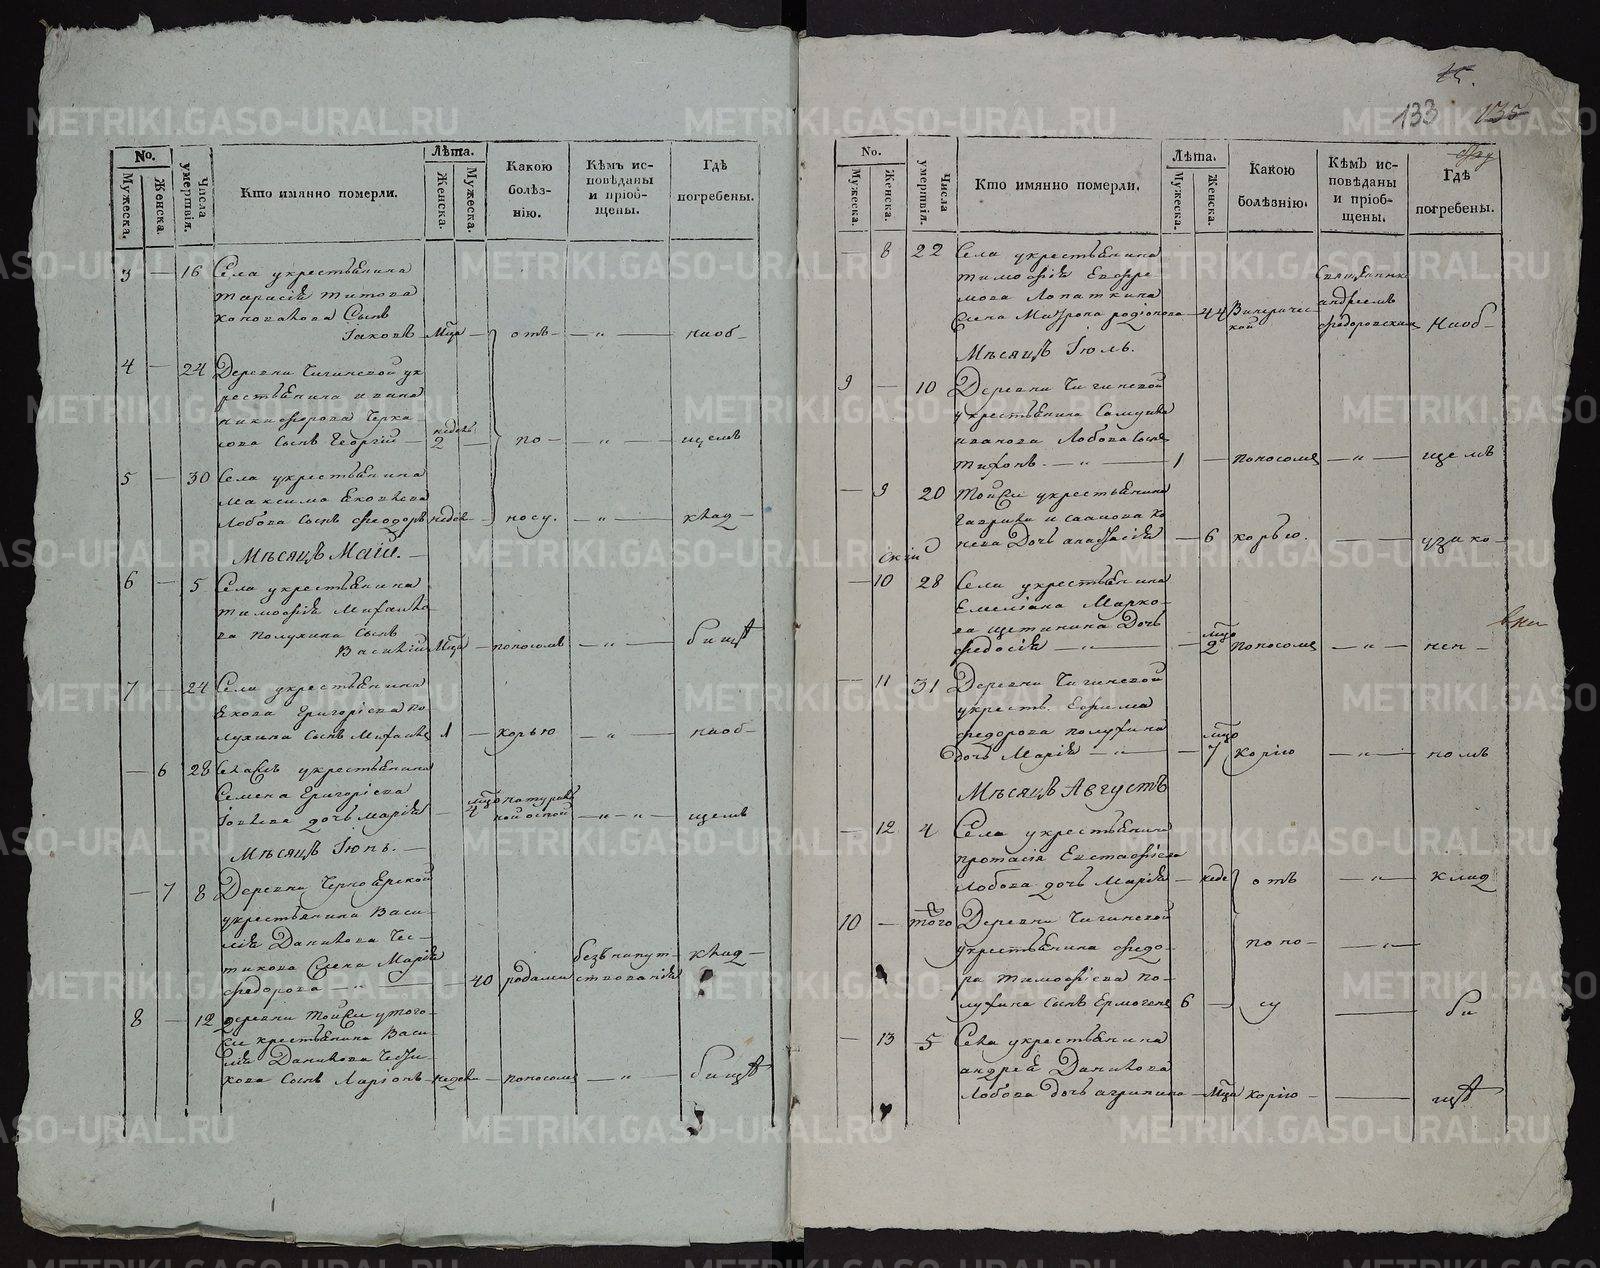 No.
Мужеска.
Женска.
Числа умертвія.
Кто иманно померли.
Лѣта.
Женска.
Мужеска.
Какою
болѣз-
нію.
Кѣмъ ис-
повѣданы
и пріоб-
щены.
Гдѣ
погребены.
3 — 16 Села у крестьянина
Тарасія Титова
Коновалова Сынъ
Іаковъ Мца — отъ — " — на об-
4 — 24 Деревни Чигинской у к
рестьянина Ивана
Никифорова Черка
сова Сынъ Георгій — недель 2 — по — " — щемъ
5 — 30 Села у крестьянина
Максима Яковлева
Лобова Сынъ Феодоръ недѣл — носу. — " — клад-
Мѣсяцъ Маій.
6 — 5 Села у крестьянина
Тимофѣя Михайло-
ва Полухина Сынъ
Василій Мца — поносомъ — " — бищѣ
7 — 24 Села у крестьянина
Якова Григорієва По
лухина Сынъ Михаилъ 1 — корью — " — на об-
— 6 28 Села у крестьянина
Семена Григорієва
дочь Марія — мцо 4 натураль
ной оспой — " — " — щемъ
Мѣсяцъ Іюнь. —
— 7 8 Деревни
у крестьянина Васи-
лія Данилова Чес-
нкова Жена Марія
Федорова — " — 40 родами безъ напут-
ствованія клад-
8 — 12 деревни Той же у того-
же крестьянина Васи-
лія Данилова
кова Сынъ Ларіонъ — недели — поносомъ — " — бищѣ
15.
133 135
No.
Мужеска.
Женска.
Числа умертвія.
Кто имянно померли.
Лѣта.
Мужеска.
Женска.
Какою
болѣзнію.
Кѣмъ ис-
повѣданы
и пріоб-
щены.
Гдѣ
погребены.
— 8 22 Села у крестьянина
Тимофія Евфре
мова Лопаткина
Жена Матрона Родіонова — 44 Венеричес-
кой
Священник
Андреемъ
Федоровским На об-
Мѣсяцъ Іюль.
9 — 10 Деревни Чигинской
у крестьянина Самуила
Иванова Лобова Сынъ
Тихонъ. — " — 1 — поносомъ — " — щемъ
— 9 20 Той же у крестьянина
Гаврила Исаакова Ко
нева Дочь Анастасія — 6 корью. — у зако-
— 10 28 Села у крестьянина
Емеліана Марко-
ва Щетинина Дочь
Федосія — " — мцо 2 поносомъ — " — нен-
— 11 31 Деревни Чигинской
у крест. Ефима
Федорова Полухина
дочь Марія — " — мцо 7 корію — " — номъ
Мѣсяцъ Августъ
— 12 4 Села у крестьянина
Протасія Евстафієва
Лобова дочь Марія — неде отъ — " — клад
10 — того Деревни Чигинской
у крестьянина Федо-
ра Тимофієва По-
лухина сынъ Ермогенъ 6 — поно- — " —
су — би
— 13 5 Села у крестьянина
Андрея Данилова
Лобова дочь Агрипина — Мца корію — щѣ
METRIKI.GASO-URAL.RU